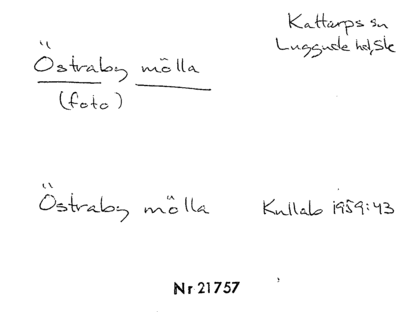 Kattarps sn
Luggude hd, Sk
Östraby mölla
(foto)
Östraby mölla Kullab 1959:43
Nr 21757